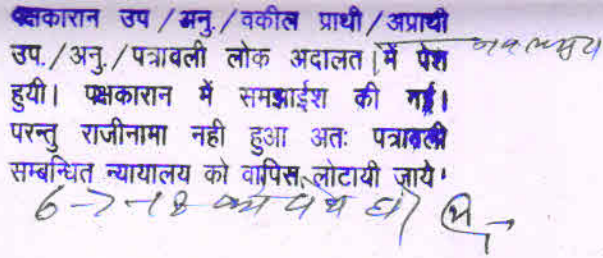 पक्षकारान उप / अनु. / वकील प्रार्थी / अप्रार्थी
उप. / अनु. / पत्रावली लोक अदालत में पेश
हुयी। पक्षकारान में समझाईश की गई।
परन्तु राजीनामा नही हुआ अतः पत्रावली
सम्बन्धित न्यायालय को वापिस लोटायी जाये।
6-7-18 को पेश हो